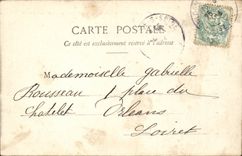 CARTE POSTALE
Ce côté est exclusivement réservé à l'adresse
Mademoiselle Gabrielle
Rousseau 1 place du
Chatelet Orleans
Loiret